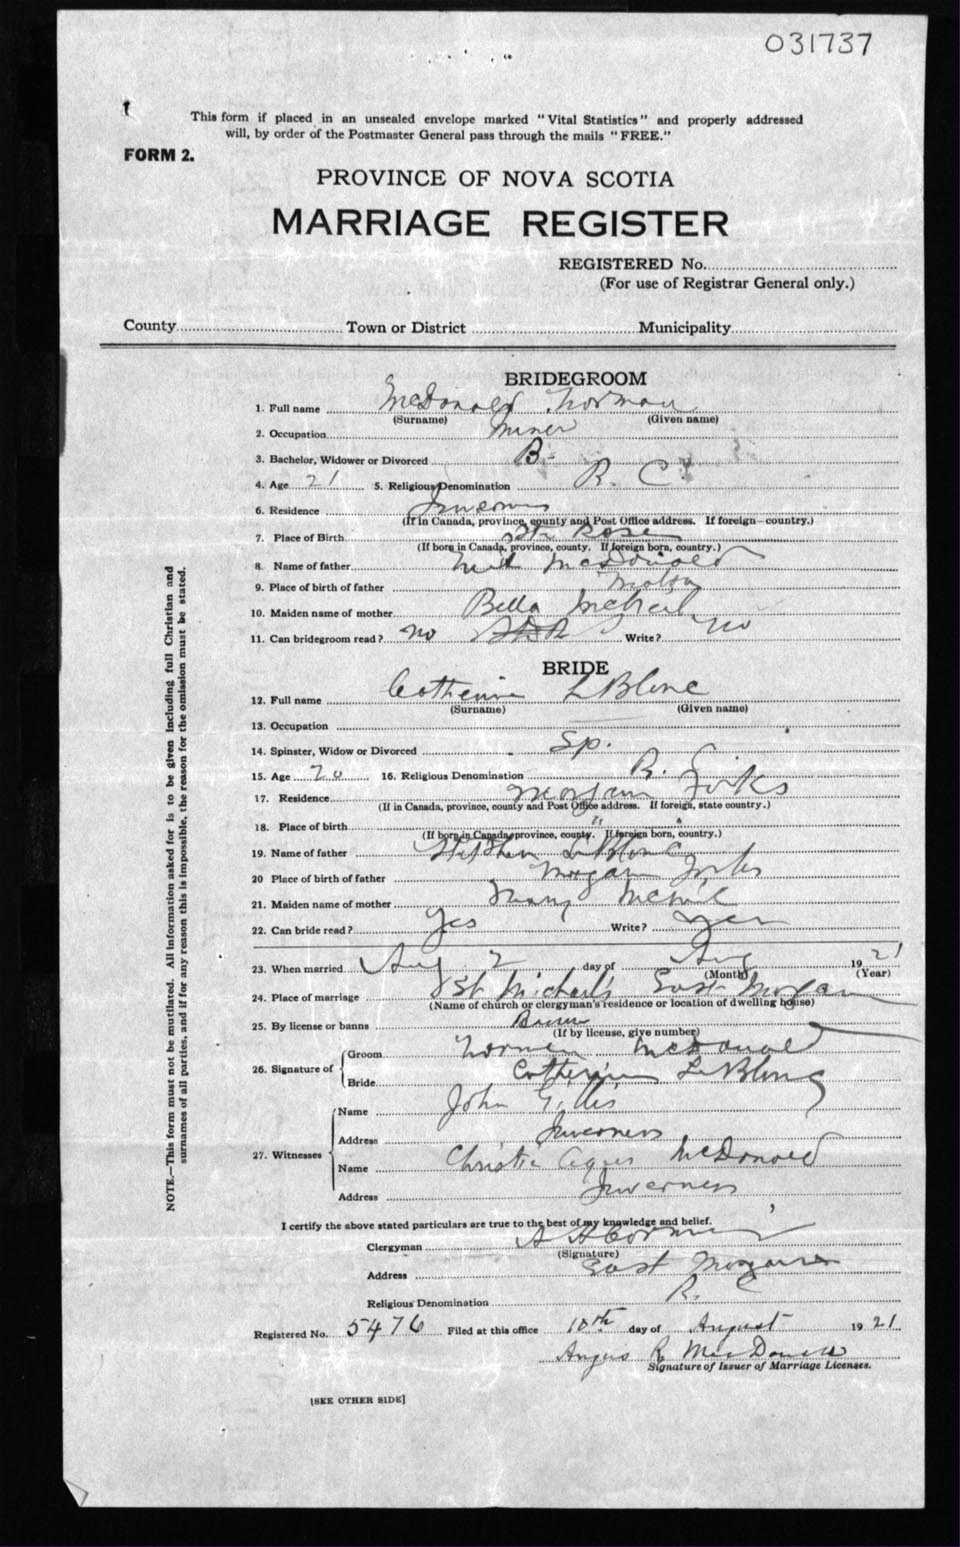 031737
This form if placed in an unsealed envelope marked "Vital Statistics" and properly addressed
will, by order of the Postmaster General pass through the mails "FREE."
FORM 2.
PROVINCE OF NOVA SCOTIA
MARRIAGE REGISTER
REGISTERED No.
(For use of Registrar General only.)
County Town or District Municipality
BRIDEGROOM
1. Full name McDonald Norman
(Surname) (Given name)
2. Occupation Miner
3. Bachelor, Widower or Divorced B-
4. Age 21 5. Religious Denomination R. C.
6. Residence Inverness
(If in Canada, province, county and Post Office address. If foreign—country.)
7. Place of Birth St Rose
(If born in Canada, province, county. If foreign born, country.)
8. Name of father McDonald
9. Place of birth of father
10. Maiden name of mother Bella McNeil
11. Can bridegroom read? no Write? no
BRIDE
12. Full name Catherine LeBlanc
(Surname) (Given name)
13. Occupation
14. Spinster, Widow or Divorced Sp.
15. Age 20 16. Religious Denomination R.
17. Residence Margaree Forks
(If in Canada, province, county and Post Office address. If foreign, state country.)
18. Place of birth " "
(If born in Canada, province, county. If foreign born, country.)
19. Name of father Stephen LeBlanc
20 Place of birth of father Margaree Forks
21. Maiden name of mother Mary McNeil
22. Can bride read? Yes Write? yes
23. When married Aug 2 day of Aug 1921
(Month) (Year)
24. Place of marriage St Michael's East Margaree
(Name of church or clergyman's residence or location of dwelling house)
25. By license or banns Banns
(If by license, give number)
26. Signature of Groom Norman McDonald
Bride Catherine LeBlanc
27. Witnesses Name John Gillis
Address Inverness
Name Christie Agnes McDonald
Address Inverness
I certify the above stated particulars are true to the best of my knowledge and belief.
Clergyman A H Cormier
(Signature)
Address East Margaree
Religious Denomination R. C
Registered No. 5476 Filed at this office 10th day of August 1921
Angus R MacDonald
Signature of Issuer of Marriage Licenses.
[SEE OTHER SIDE]
NOTE.—This form must not be mutilated. All information asked for is to be given including full Christian and
surnames of all parties, and if for any reason this is impossible, the reason for the omission must be stated.